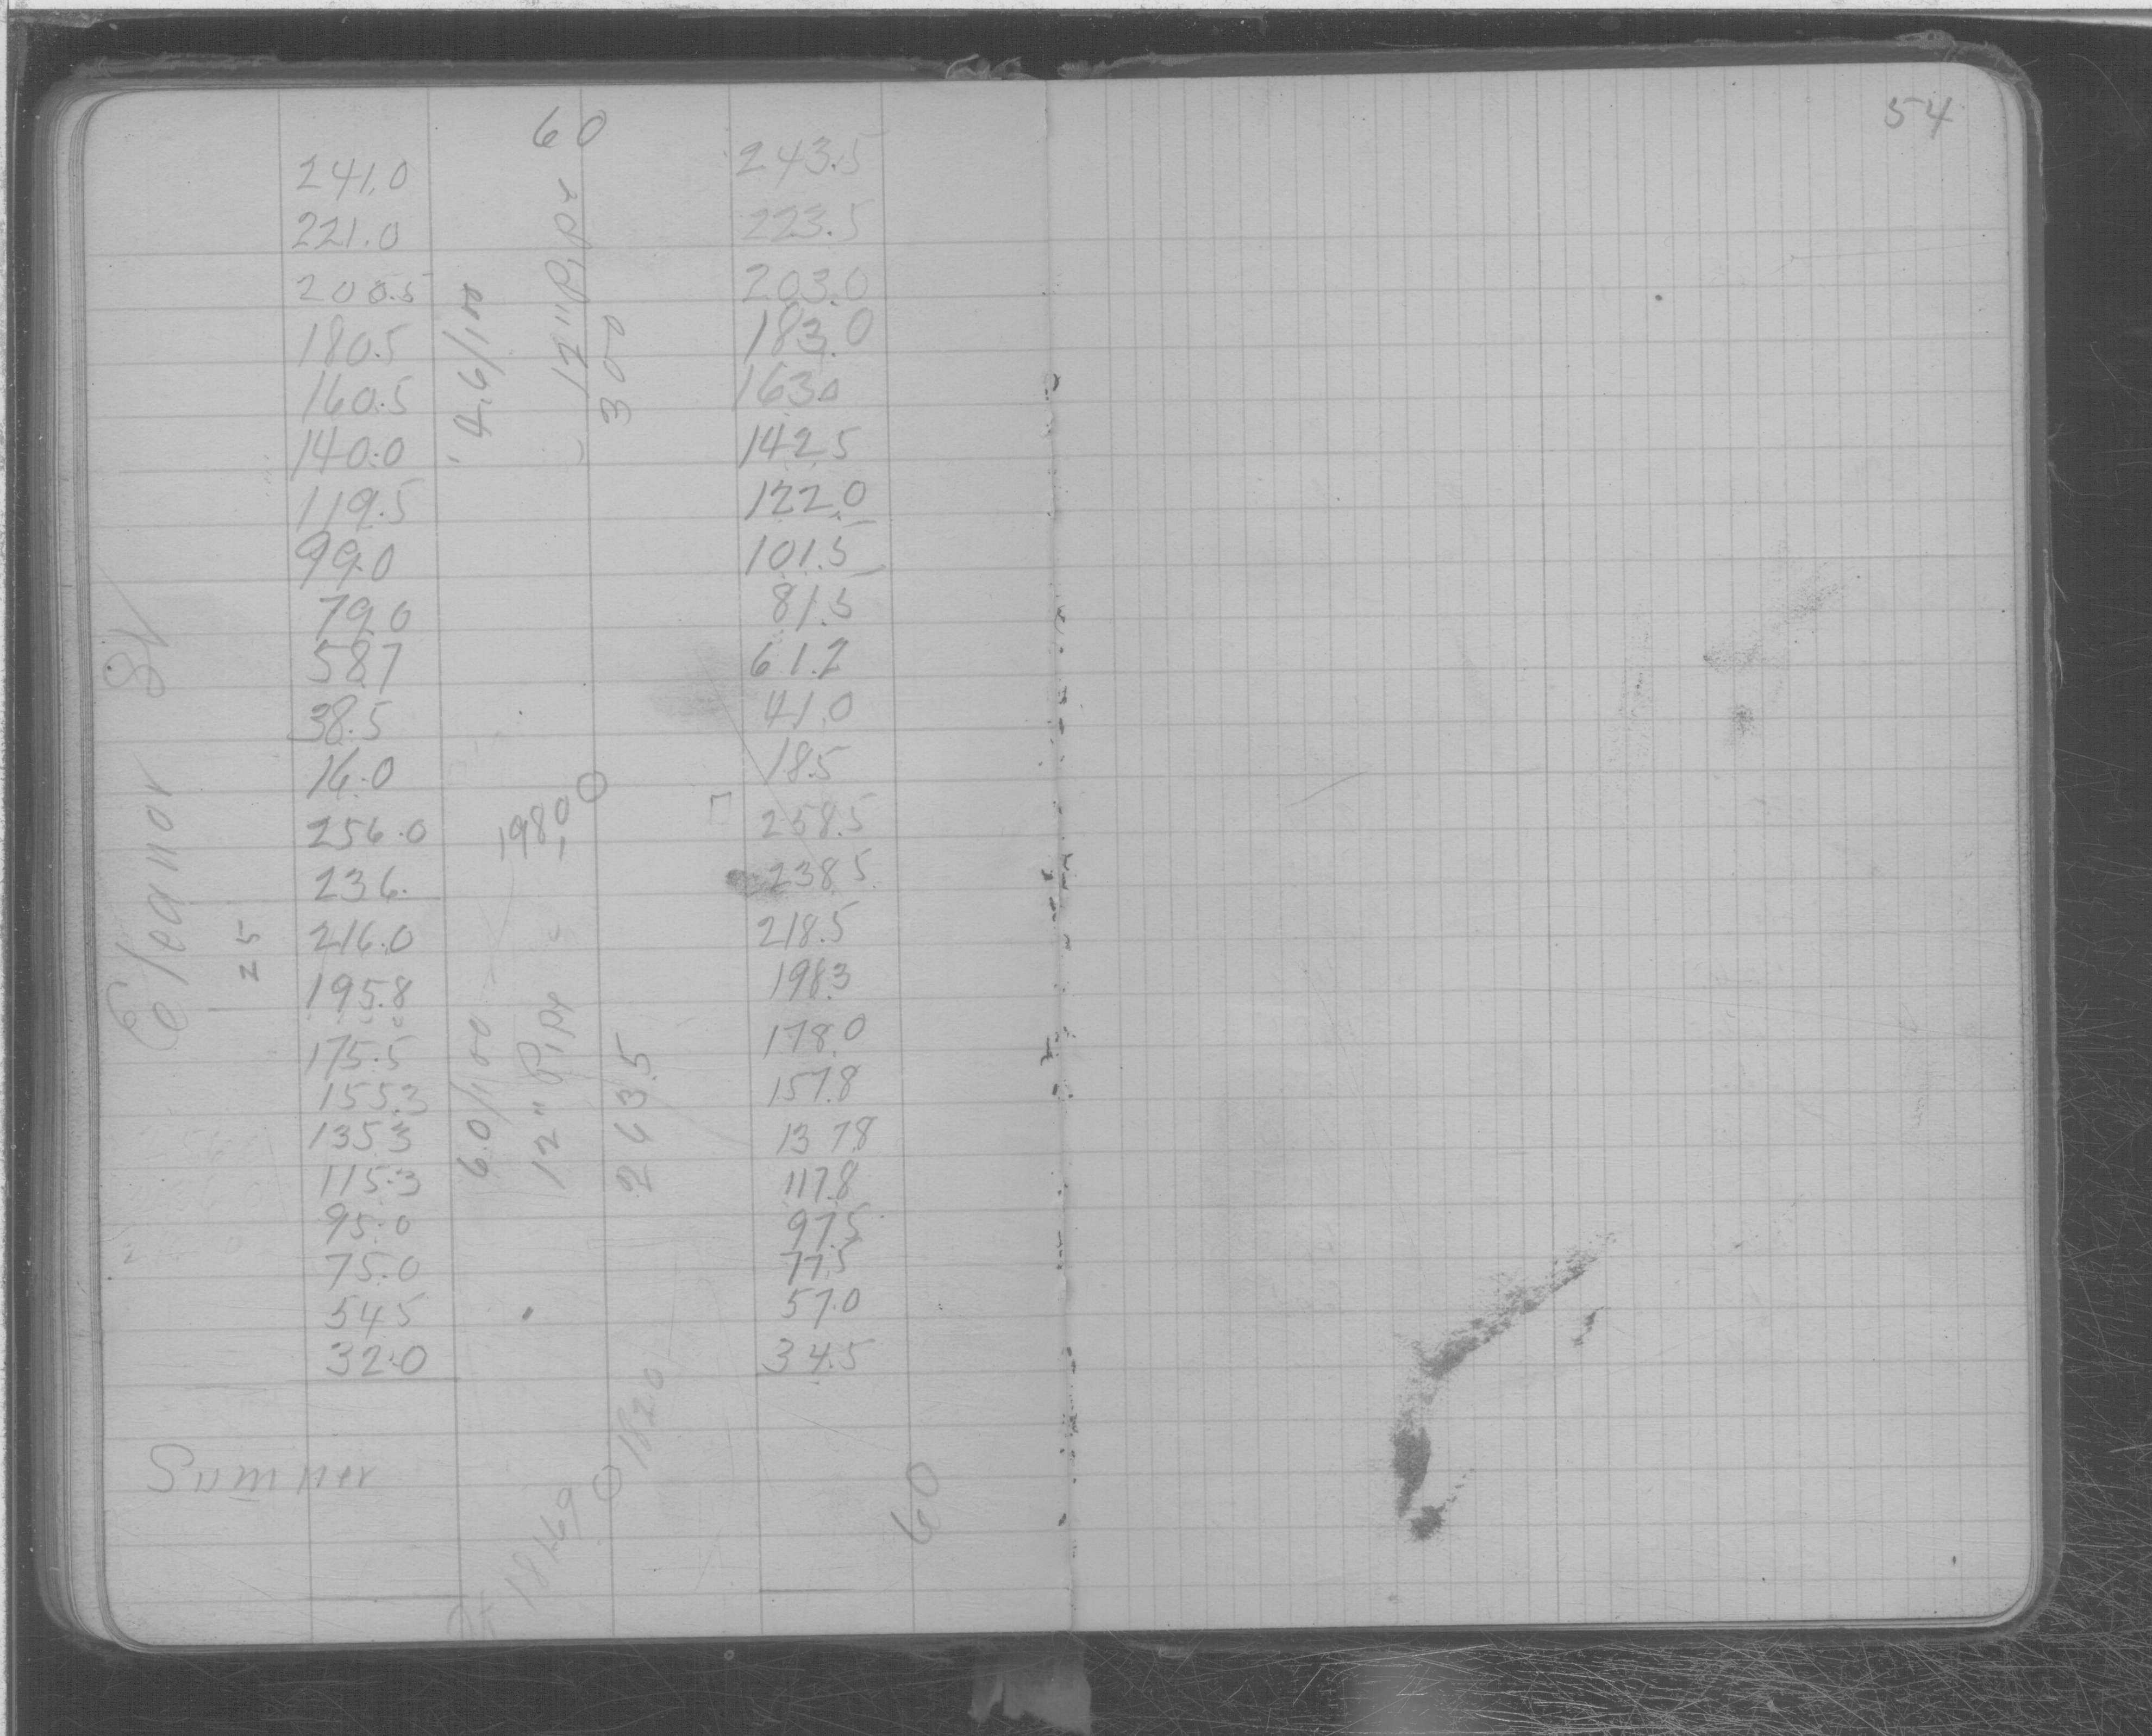 54
60
241.0 243.5
221.0 223.5
200.5 203.0
180.5 183.0
160.5 163.0
140.0 142.5
119.5 122.0
99.0 101.5
79.0 81.5
58.7 61.2
38.5 41.0
16.0 18.5
256.0 258.5
236. 238.5
216.0 218.5
195.8 198.3
175.5 178.0
155.3 157.8
135.3 137.8
115.3 117.8
95.0 97.5
75.0 77.5
54.5 57.0
32.0 34.5
4.6/100
12" Pipe
300
Eleanor St
25
198.0
6.0/100
12" Pipe
263.5
Sumner
1820
60